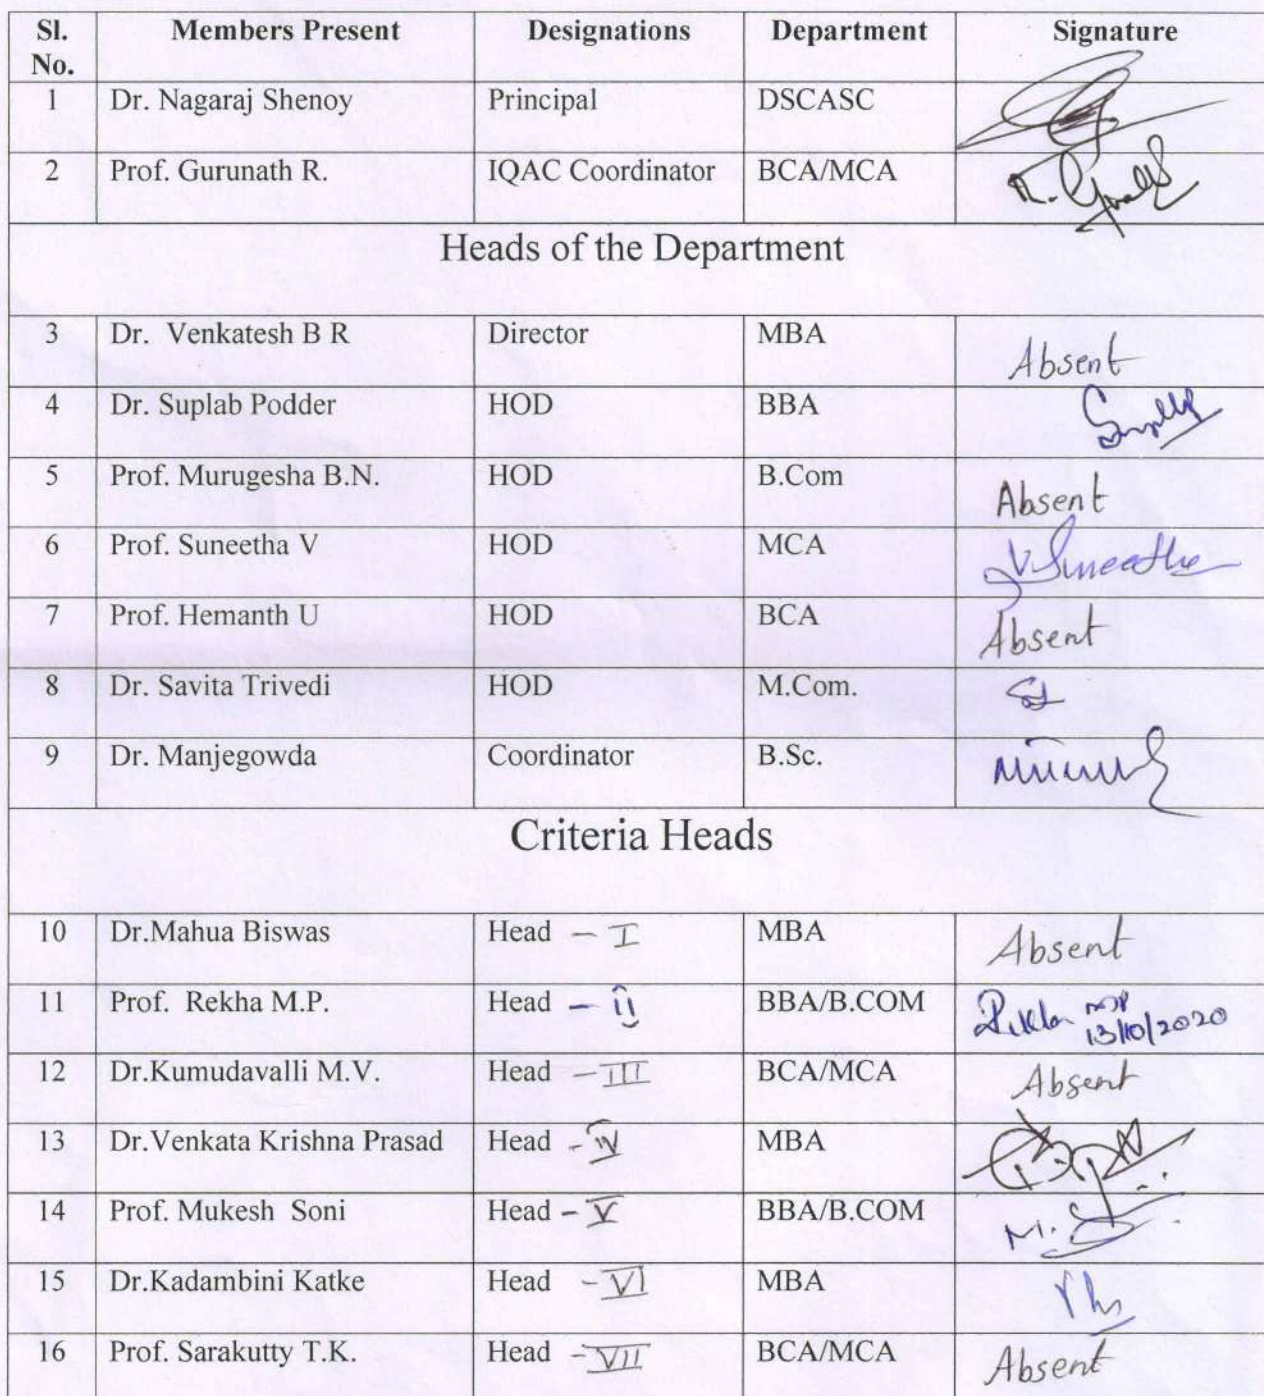 Sl. No. Members Present Designations Department Signature
1 Dr. Nagaraj Shenoy Principal DSCASC
2 Prof. Gurunath R. IQAC Coordinator BCA/MCA
Heads of the Department
3 Dr. Venkatesh B R Director MBA Absent
4 Dr. Suplab Podder HOD BBA
5 Prof. Murugesha B.N. HOD B.Com Absent
6 Prof. Suneetha V HOD MCA V Suneetha
7 Prof. Hemanth U HOD BCA Absent
8 Dr. Savita Trivedi HOD M.Com.
9 Dr. Manjegowda Coordinator B.Sc.
Criteria Heads
10 Dr.Mahua Biswas Head - I MBA Absent
11 Prof. Rekha M.P. Head - II BBA/B.COM Rekha MP 13/10/2020
12 Dr.Kumudavalli M.V. Head - III BCA/MCA Absent
13 Dr.Venkata Krishna Prasad Head - IV MBA
14 Prof. Mukesh Soni Head - V BBA/B.COM
15 Dr.Kadambini Katke Head - VI MBA
16 Prof. Sarakutty T.K. Head - VII BCA/MCA Absent